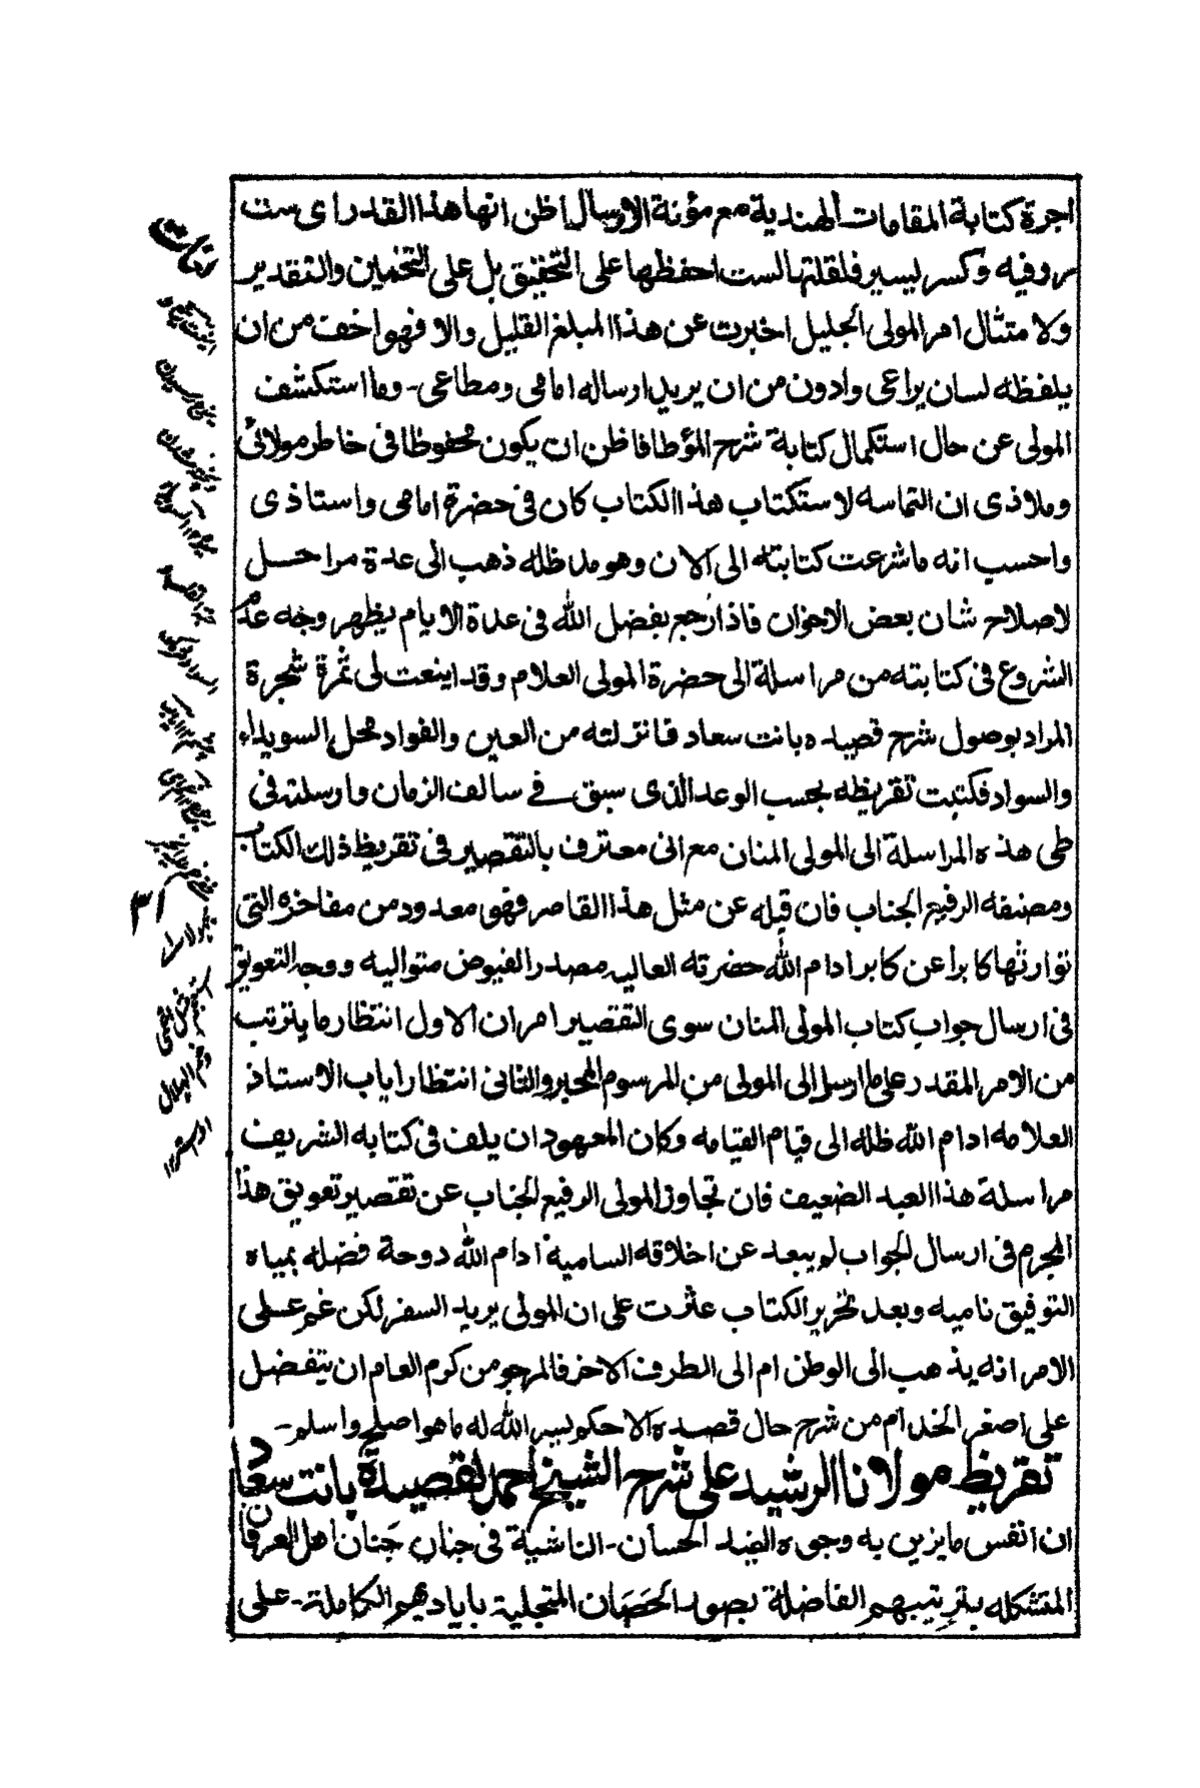 اجرة كتابة المقامات الهندية مع مؤنة الارسال اظن انها هذا القدر اى ست
روفيه وكسر ليسير فلقلتها لست احفظها على التحقيق بل على التخمين والتقدير
ولامتثال امر المولى الجليل اخبرت عن هذا المبلغ القليل والا فهو اخف من ان
يلفظه لسان يراعى وادون من ان يريد ارساله امامى ومطاعى - وما استكشف
المولى عن حال استكمال كتابة شرح المؤطا فاظن ان يكون محفوظا فى خاطر مولائى
وملاذى ان التماسه لاستكتاب هذا الكتاب كان فى حضرة امامى واستاذى
واحسب انه ما شرعت كتابته الى الان وهو مد ظله ذهب الى عدة مراحل
لاصلاح شان بعض الاخوان فاذا رجع بفضل الله فى عدة الايام يظهر وجه عدم
الشروع فى كتابته من مراسلة الى حضرة المولى العلام وقد اينعت لى ثمرة شجرة
المراد بوصول شرح قصيده بانت سعاد فانزلته من العين والفواد محل السويداء
والسواد فكتبت تقريظه بحسب الوعد الذى سبق فى سالف الزمان وارسلته فى
طى هذه المراسلة الى المولى المنان مع انى معترف بالتقصير فى تقريظ ذلك الكتاب
ومصنفه الرفيع الجناب فان قبله عن مثل هذا القاصر فهو معدود من مفاخره التى
توارثها كابرا عن كابر ادام الله حضرته العاليه مصدر الفيوض متواليه ووجه التعويق
فى ارسال جواب كتاب المولى المنان سوى التقصير امران الاول انتظار ما يترتب
من الامر المقدر على ما ارسل الى المولى من المرسوم المحبر والثانى انتظار اياب الاستاذ
العلامه ادام الله ظله الى قيام القيامه وكان المعهود ان يلف فى كتابه الشريف
مراسلة هذا العبد الضعيف فان تجاوز المولى الرفيع الجناب عن تقصير تعويق هذا
المجرم فى ارسال الجواب لم يبعد عن اخلاقه السامية ادام الله دوحة فضله بمياه
التوفيق ناميه وبعد تحرير الكتاب عثرت على ان المولى يريد السفر لكن غم على
الامر انه يذهب الى الوطن ام الى الطرف الاخر فالمرجو من كرم العام ان يتفضل
على اصغر الخدام من شرح حال قصده الاحكم ليسر الله له ما هو اصلح واسلم -
تقريظ مولانا الرشيد على شرح الشيخ احمد لقصيدة بانت سعاد
ان انفس ما يزين به وجوه الغيد الحسان - الناشية فى جنان جنان اهل العرفان
المتشكله بترتيبهم الفاضلة بصور الحصان المتجلية باياديهم الكاملة - على
٣١